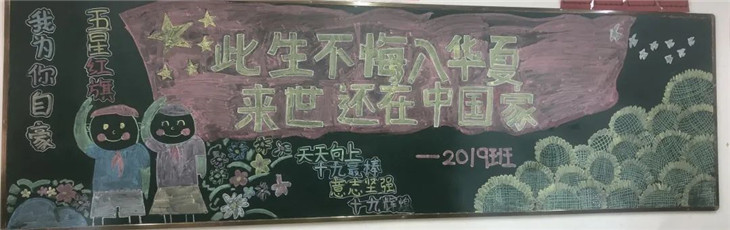 我为你自豪
五星红旗
此生不悔入华夏
来世还在中国家
天天向上
十九最棒
意志坚强
十九辉煌
—2019班